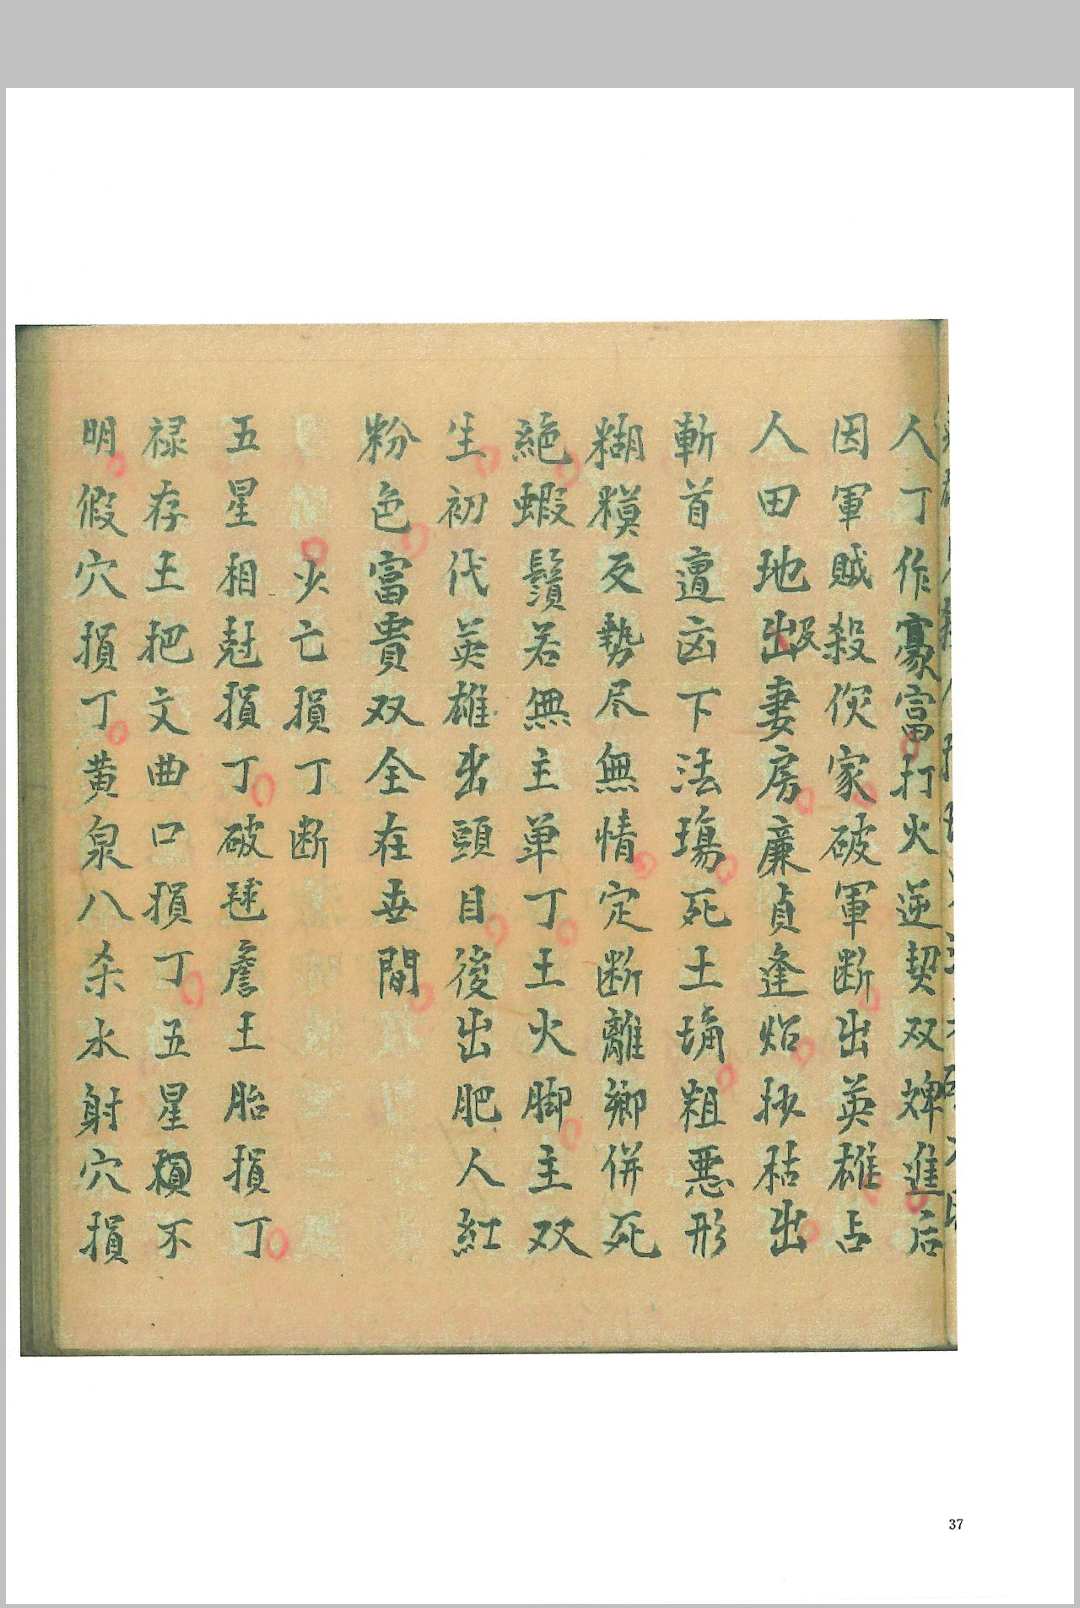 人丁作豪富打火逆契双婢進后
因軍賊殺伩家破軍断出英雄占
人田地出妻房廉貞逢焰抝秙出
斬首遭凶下法塲死土埆粗悪形
糊糢反勢尽無情定断離鄉併死
絕蝦鬚若無主单丁王火脚主双
生初代英雄出頭目後出肥人紅
粉色富貴双全在丗間
火亡損丁断
五星相尅損丁破毬詹王胎損丁
禄存王把文曲口損丁五星損不
明假穴損丁黄泉八杀水射穴損
37